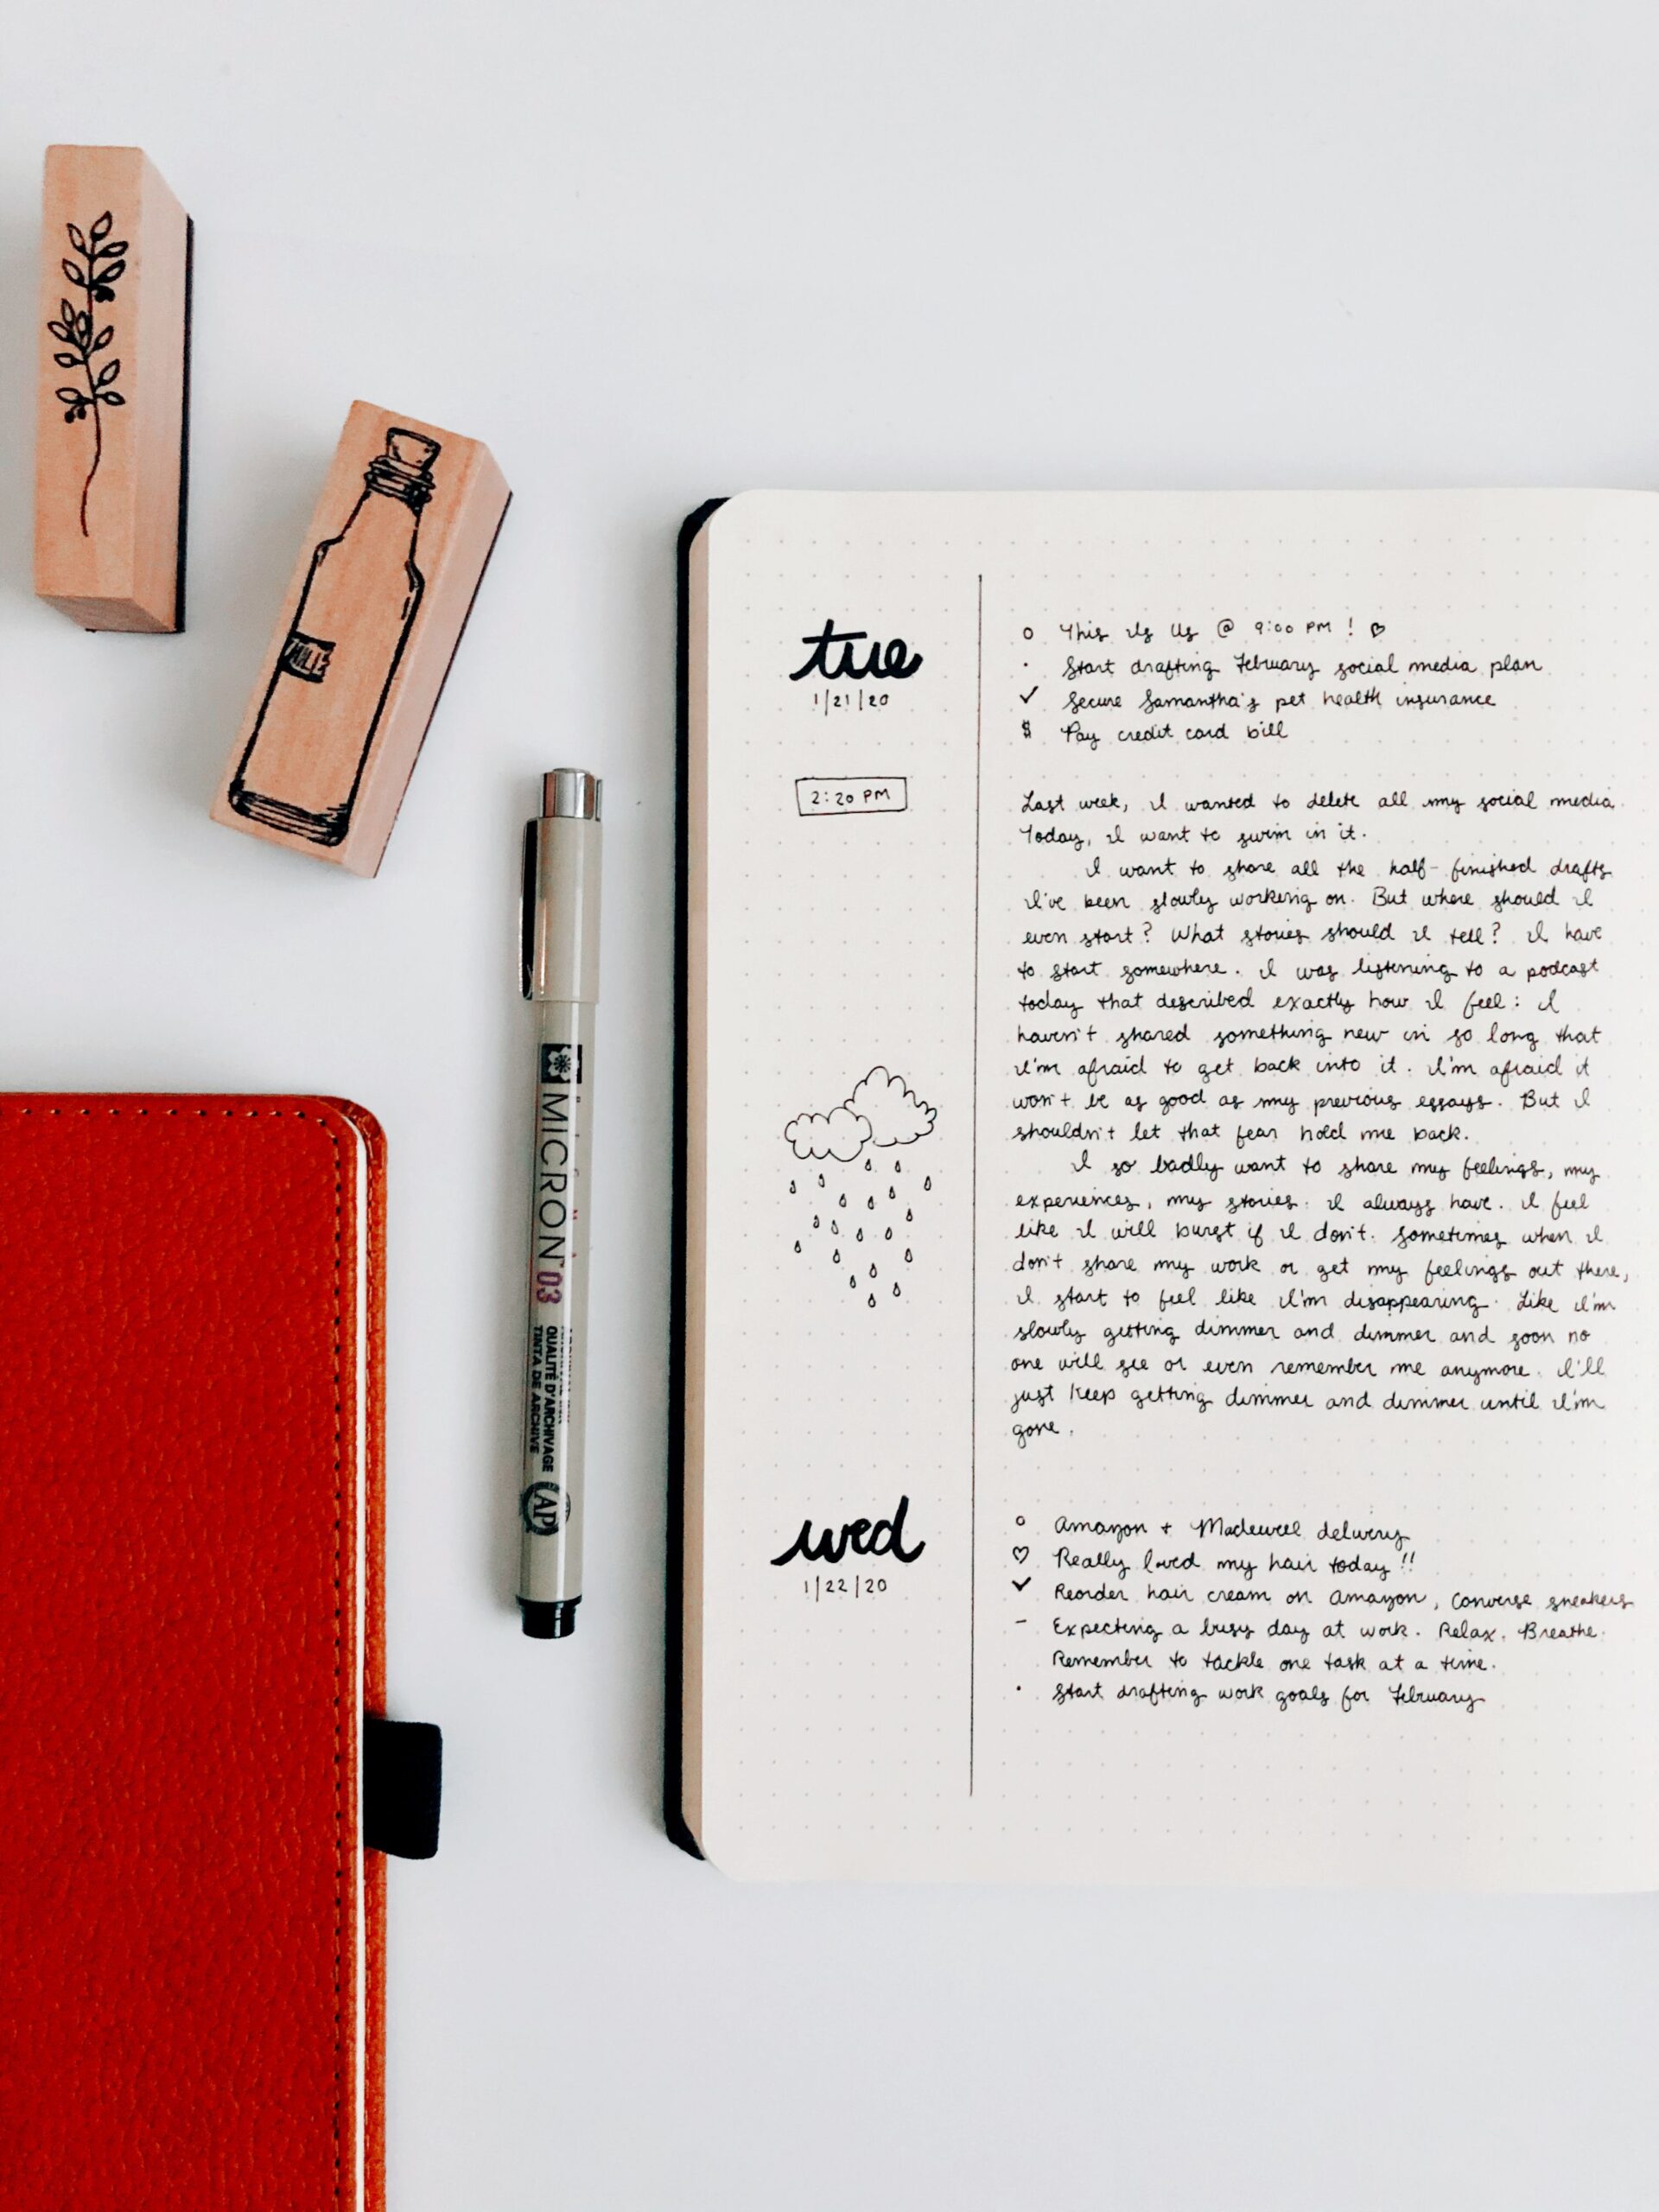 tue
1/21/20
This Is Us @ 9:00 PM !
Start drafting February social media plan
Secure Samantha's pet health insurance
$ Pay credit card bill
2:20 PM
Last week, I wanted to delete all my social media.
Today, I want to swim in it.
I want to share all the half-finished drafts
I've been slowly working on. But where should I
even start? What stories should I tell? I have
to start somewhere. I was listening to a podcast
today that described exactly how I feel: I
haven't shared something new in so long that
I'm afraid to get back into it. I'm afraid it
won't be as good as my previous essays. But I
shouldn't let that fear hold me back.
I so badly want to share my feelings, my
experiences, my stories. I always have. I feel
like I will burst if I don't. Sometimes when I
don't share my work or get my feelings out there,
I start to feel like I'm disappearing. Like I'm
slowly getting dimmer and dimmer and soon no
one will see or even remember me anymore. I'll
just keep getting dimmer and dimmer until I'm
gone.
wed
1/22/20
Amazon + Madewell delivery
Really loved my hair today !!
✓ Reorder hair cream on Amazon, Converse sneakers
- Expecting a busy day at work. Relax. Breathe.
Remember to tackle one task at a time.
· Start drafting work goals for February
MICRON 03
QUALITÉ D'ARCHIVAGE
TINTA DE ARCHIVE
AP